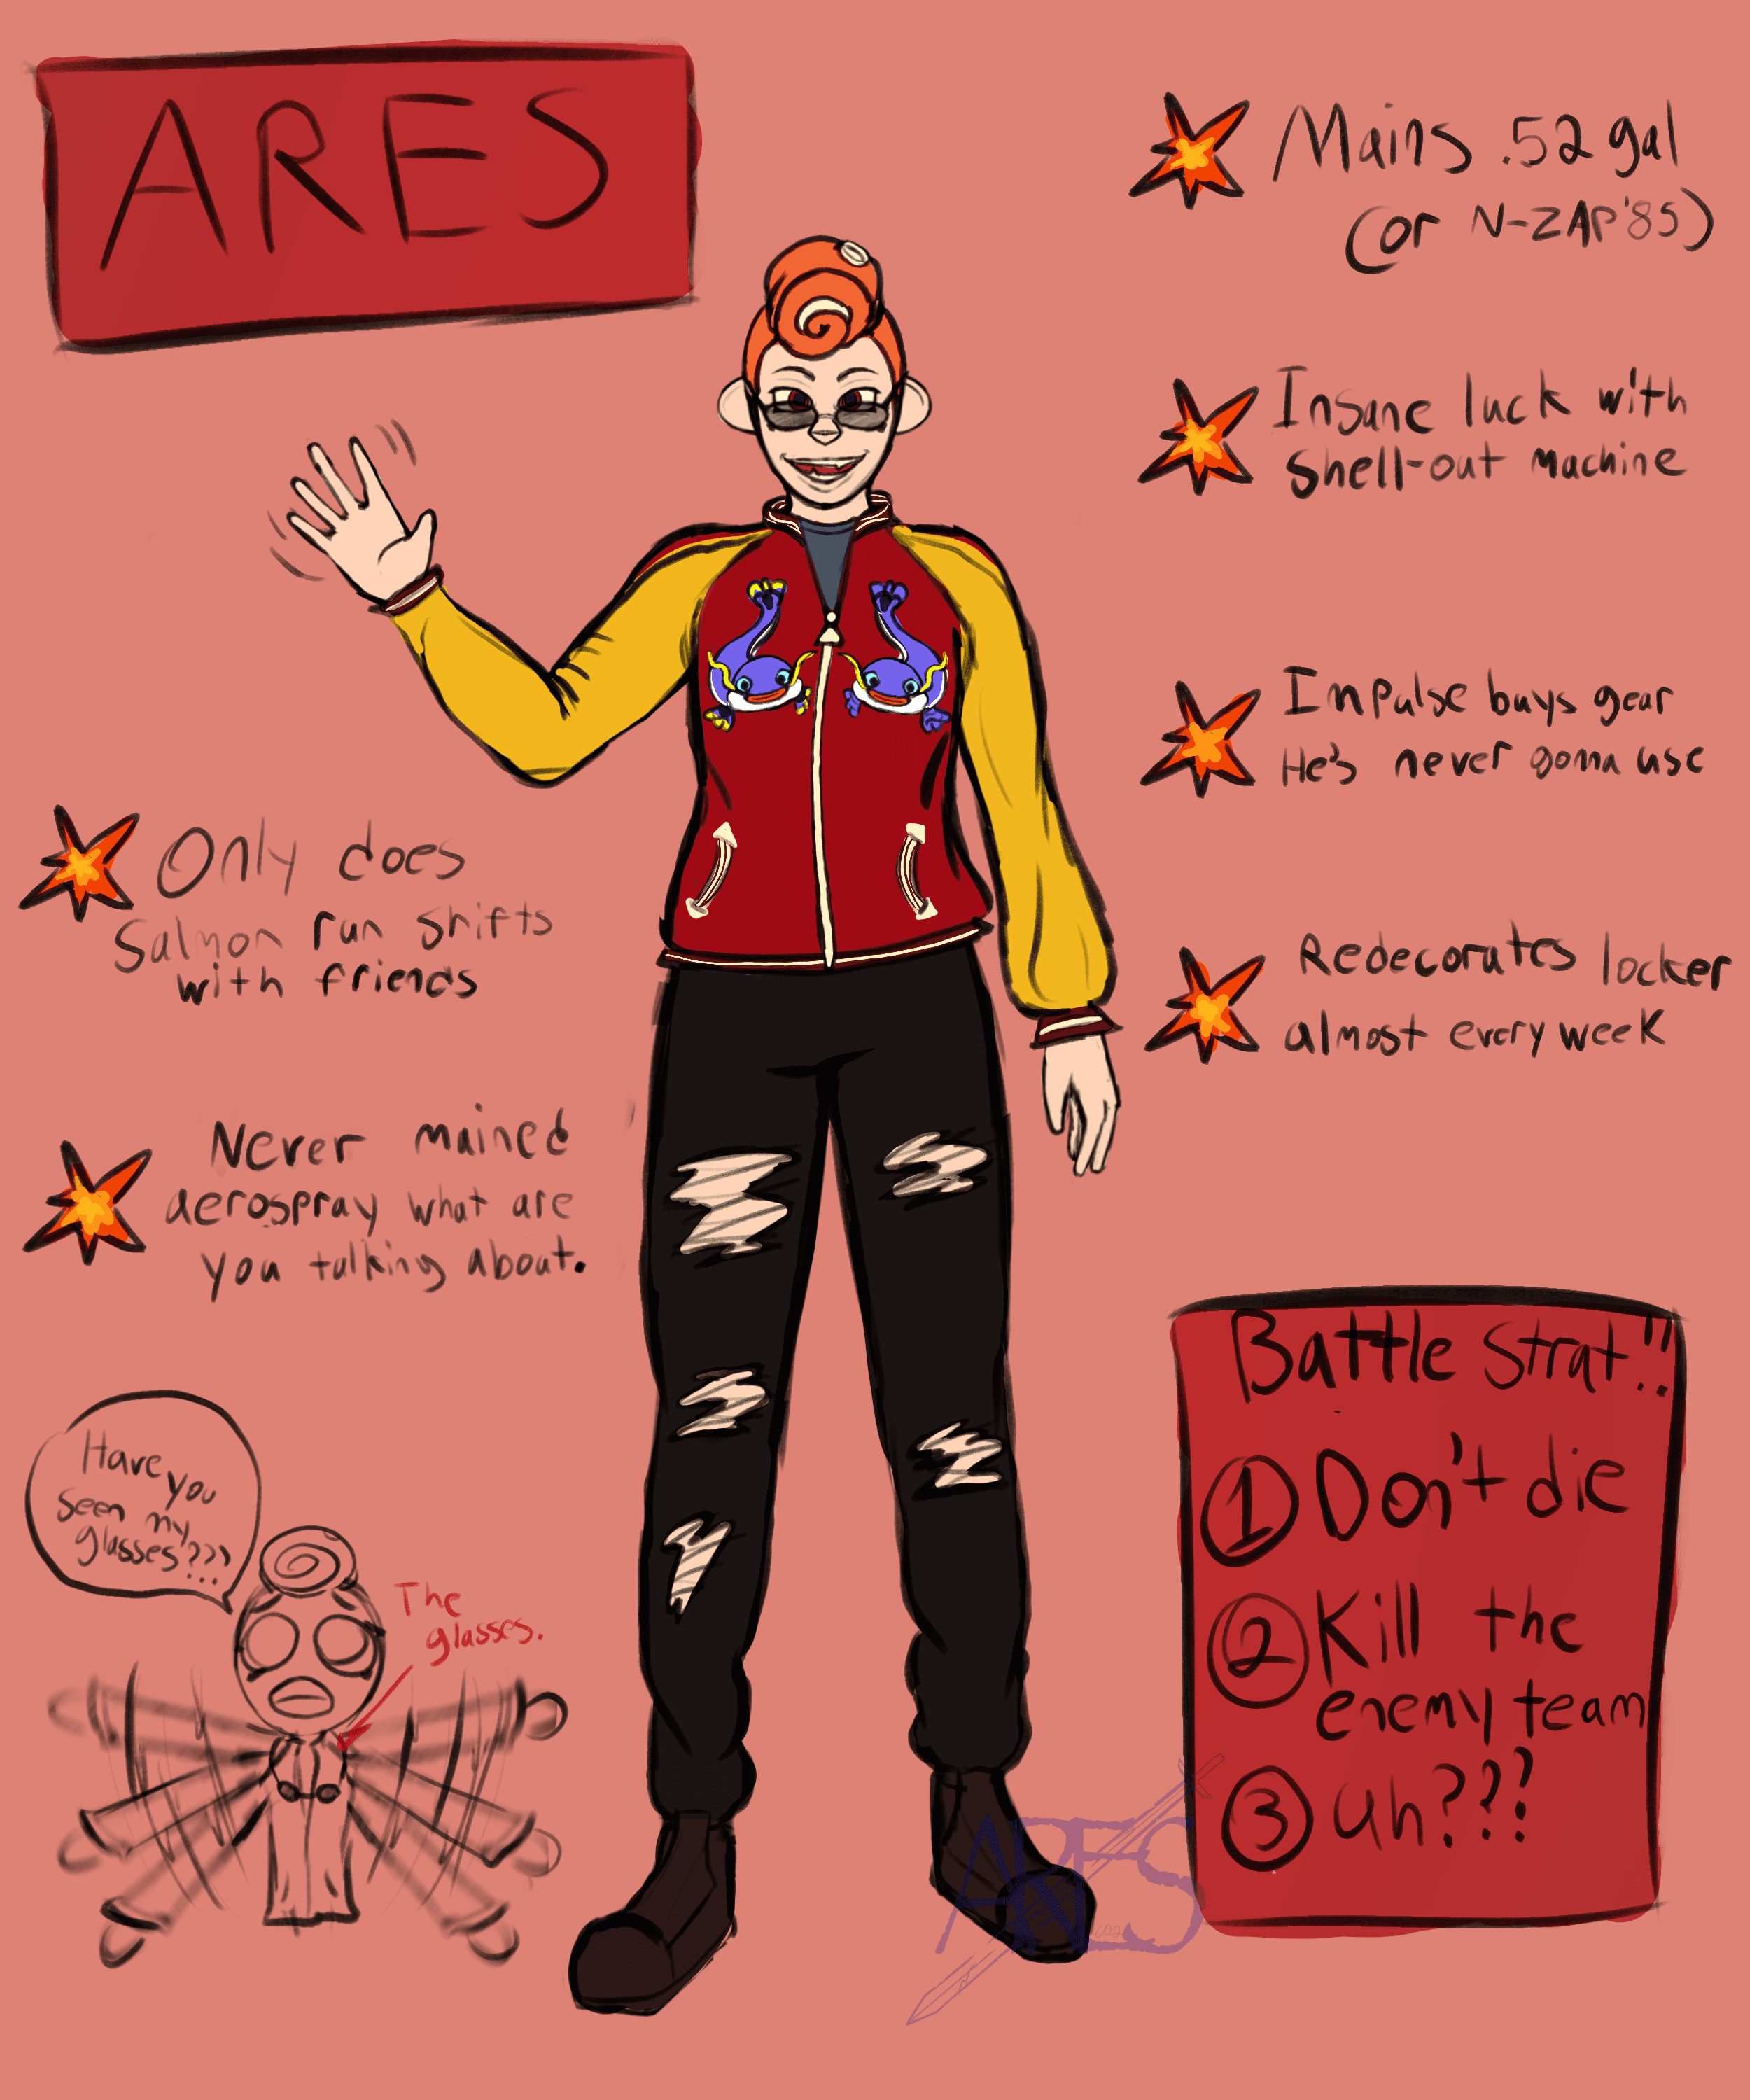 ARES
Mains .52 gal
(or N-ZAP'85)
Insane luck with
shell-out machine
Impulse buys gear
He's never gonna use
Redecorates locker
almost every week
Only does
Salmon run shifts
with friends
Never mained
aerospray what are
you talking about.
Have you
seen my
glasses???
The
glasses.
Battle strat!!
1 Don't die
2 Kill the
enemy team
3 uh???
ARES